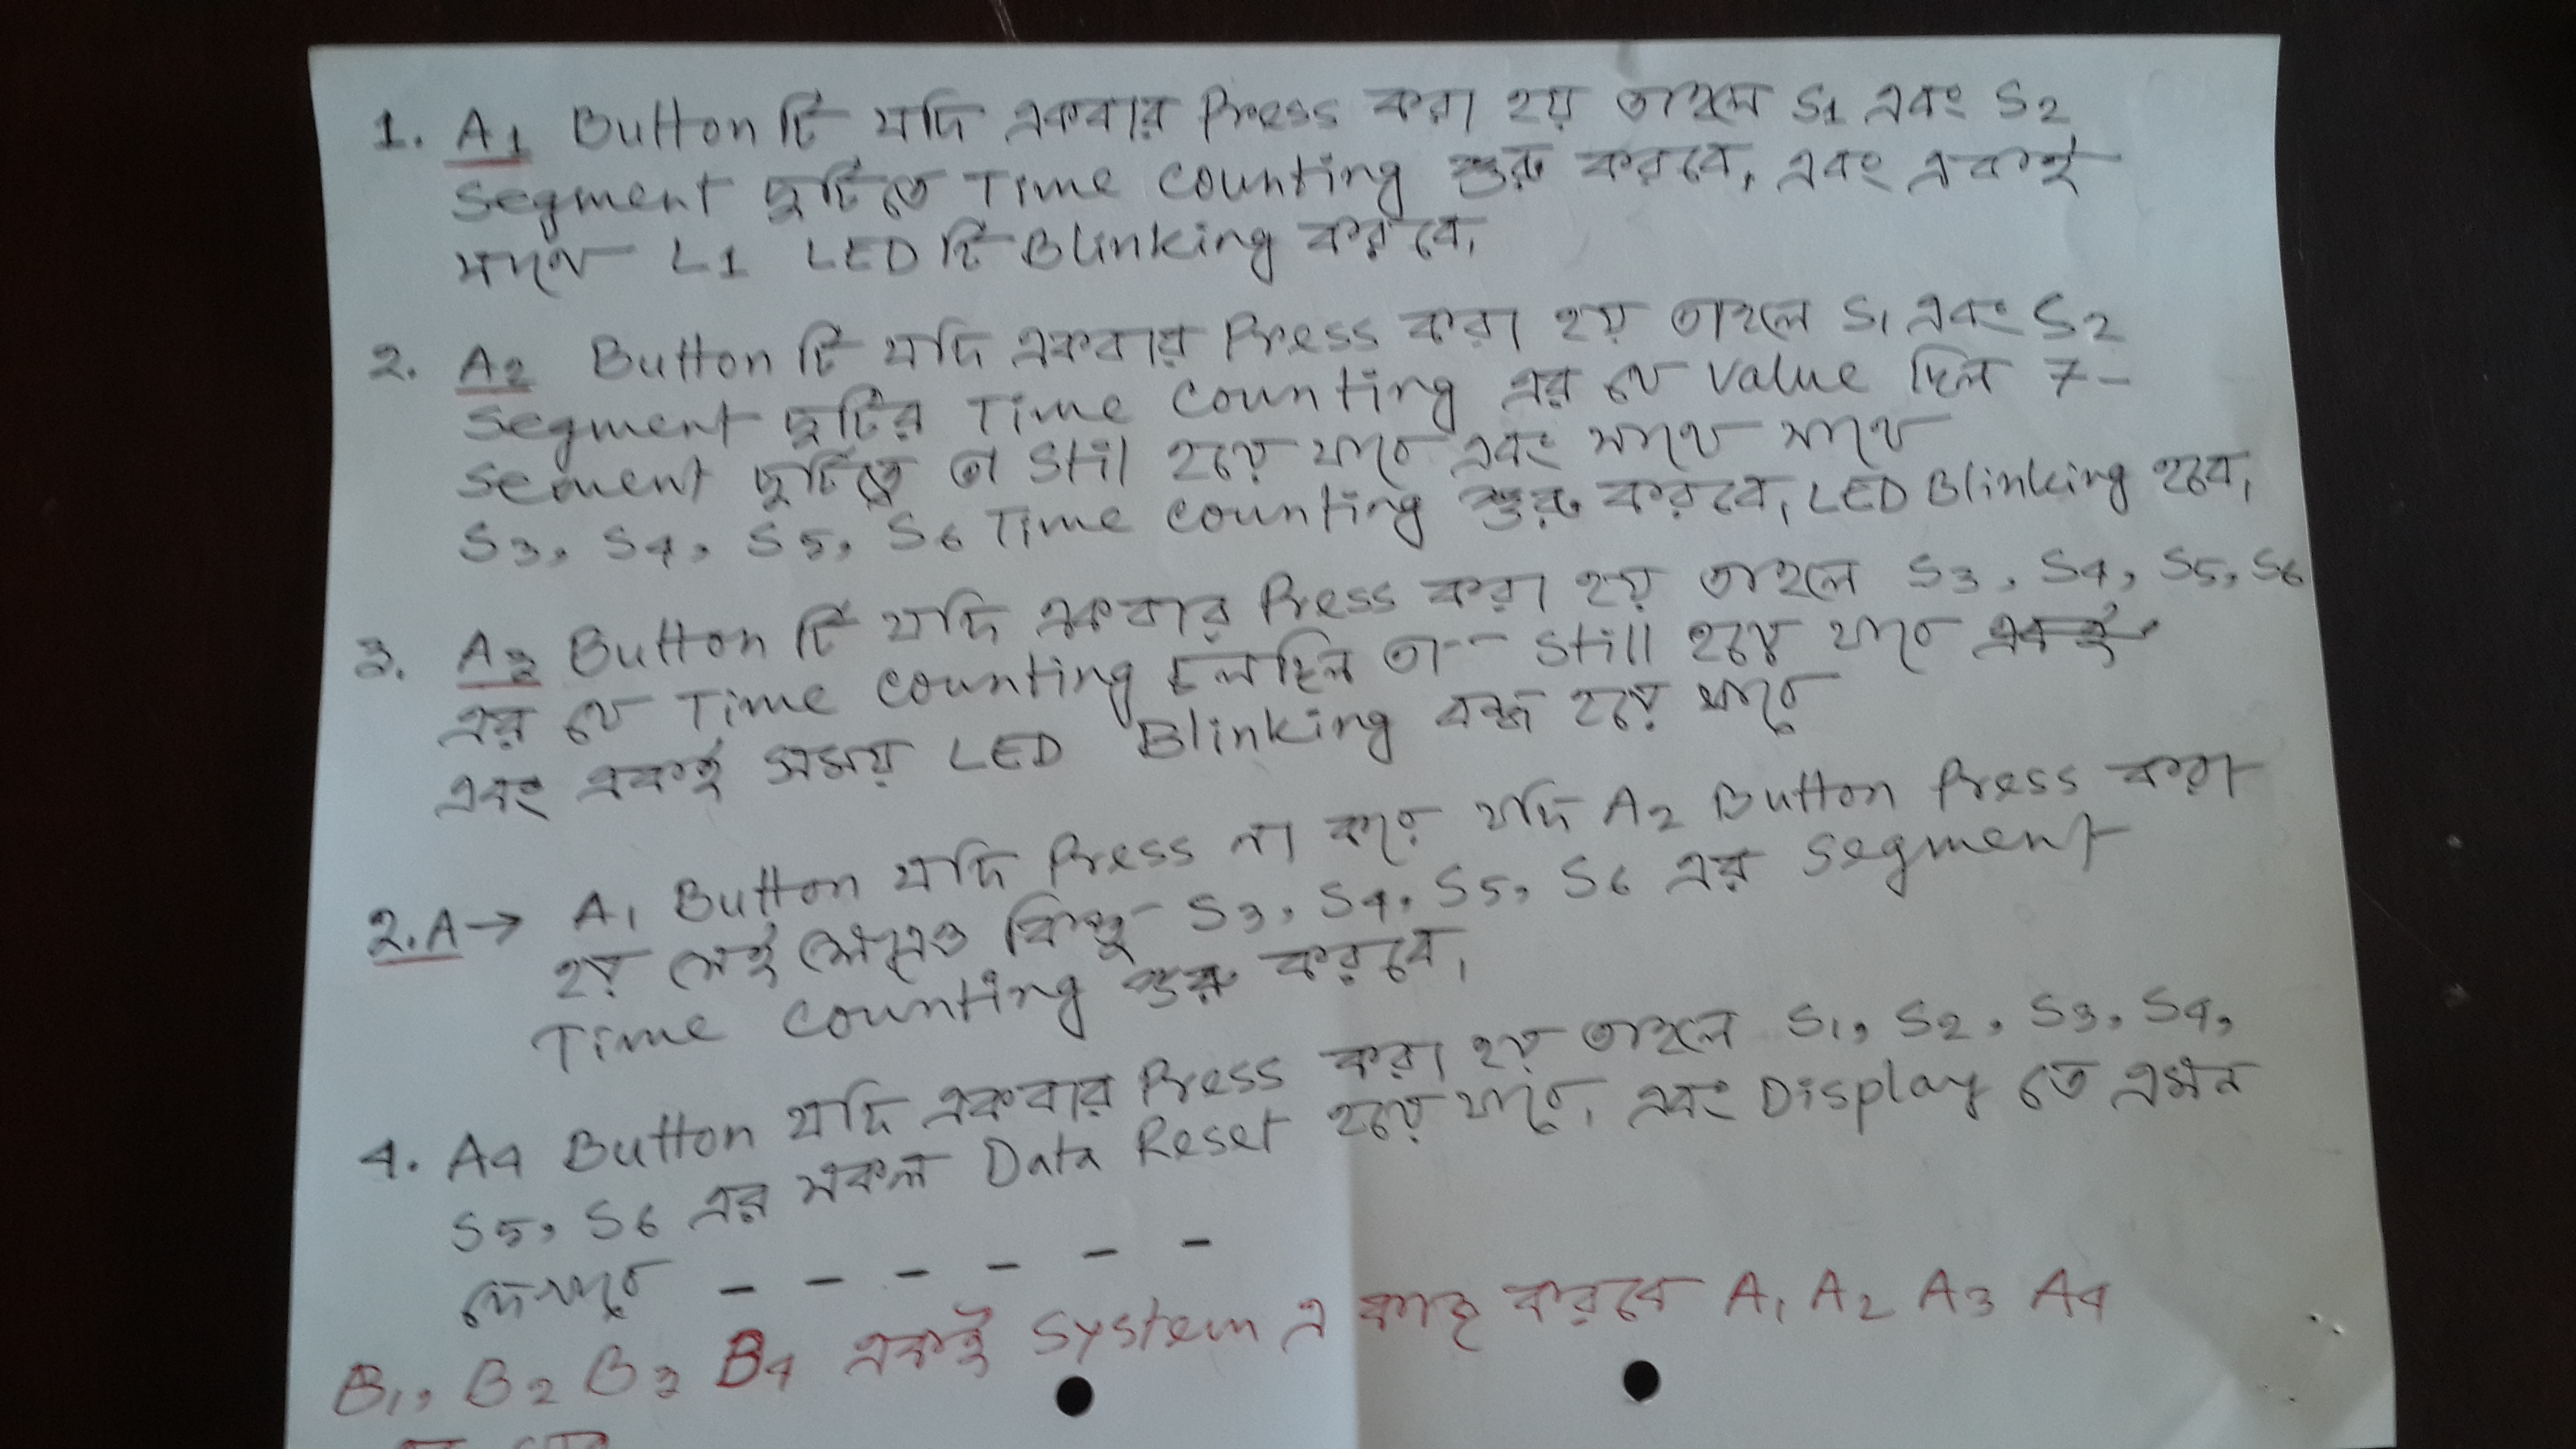 1. A1 Button টি যদি একবার Press করা হয় তাহলে S1 এবং S2
Segment দুটিতে Time counting শুরু করবে, এবং একই
সাথে L1 LED টি Blinking করবে,
2. A2 Button টি যদি একবার Press করা হয় তাহলে S1 এবং S2
Segment দুটির Time counting এর যে value ছিল 7-
Sement দুটিতে তা Stil হয়ে যাবে এবং সাথে সাথে
S3, S4, S5, S6 Time counting শুরু করবে, LED Blinking হবে,
3. A3 Button টি যদি একবার Press করা হয় তাহলে S3, S4, S5, S6
এর যে Time counting চলছিল তা -- Still হয়ে যাবে একই
এবং একই সময় LED Blinking বন্ধ হয়ে যাবে
2.A → A1 Button যদি Press না করে যদি A2 Button Press করা
হয় সেই ক্ষেত্রেও কিন্তু S3, S4, S5, S6 এর Segment
Time counting শুরু করবে,
4. A4 Button যদি একবার Press করা হয় তাহলে S1, S2, S3, S4,
S5, S6 এর সকল Data Reset হয়ে যাবে, এবং Display তে এমন
দেখাবে – – – – – –
B1, B2 B3 B4 একই System এ কাজ করবে A1 A2 A3 A4